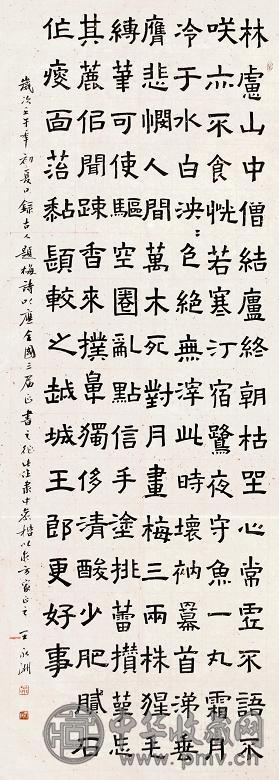 林慮山中僧結廬終朝枯坐心常虛不語不
咲亦不食恍若寒汀宿鷺夜守魚一丸霜月
冷于水白泱泱色絕無滓此時壞衲冪首涕垂
膺悲憫人間萬木死對月畫梅三兩株猩毛
縛筆可使驅空圈亂點信手塗挑蕾攢萼忘
其麓侶聞踈香來撲鼻獨侈清酸少肥膩石
瘦面落黏較之越城王郎更好事
歲次壬午年初夏日錄古人題梅詩以應全國三屆正書之徵此隸中參楷以求方家正之王永
中华收藏网
www.pmv.cn